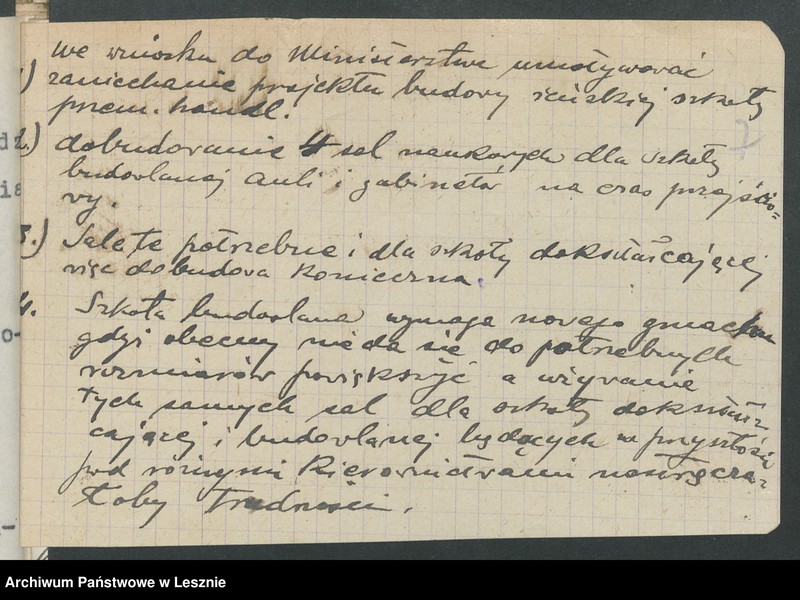 we wniosku do Ministerstwa umotywować
1) zaniechanie projektu budowy żeńskiej szkoły
przem. handl.
2.) dobudowanie 4 sal naukowych dla szkoły
budowlanej auli i gabinetów na czas przejścio=
wy.
3.) Sale te potrzebne i dla szkoły dokształcającej
więc dobudowa konieczna.
4. Szkoła budowlana wymaga nowego gmachu
gdyż obecny nie da się do potrzebnych
rozmiarów powiększyć a używanie
tych samych sal dla szkoły dokształ=
cającej i budowlanej będących w przyszłości
pod różnymi kierownictwami nastręcza=
łoby trudności.
Archiwum Państwowe w Lesznie